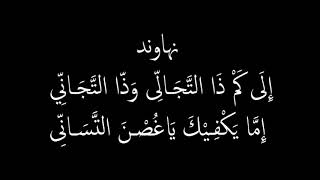 نهاوند
إِلَى كَمْ ذَا التَّجَالِّى وَذَّا التَّجَانِّي
إِمَّا يَكْفِيْكَ يَاغُصْنَ التَّسَانِّى